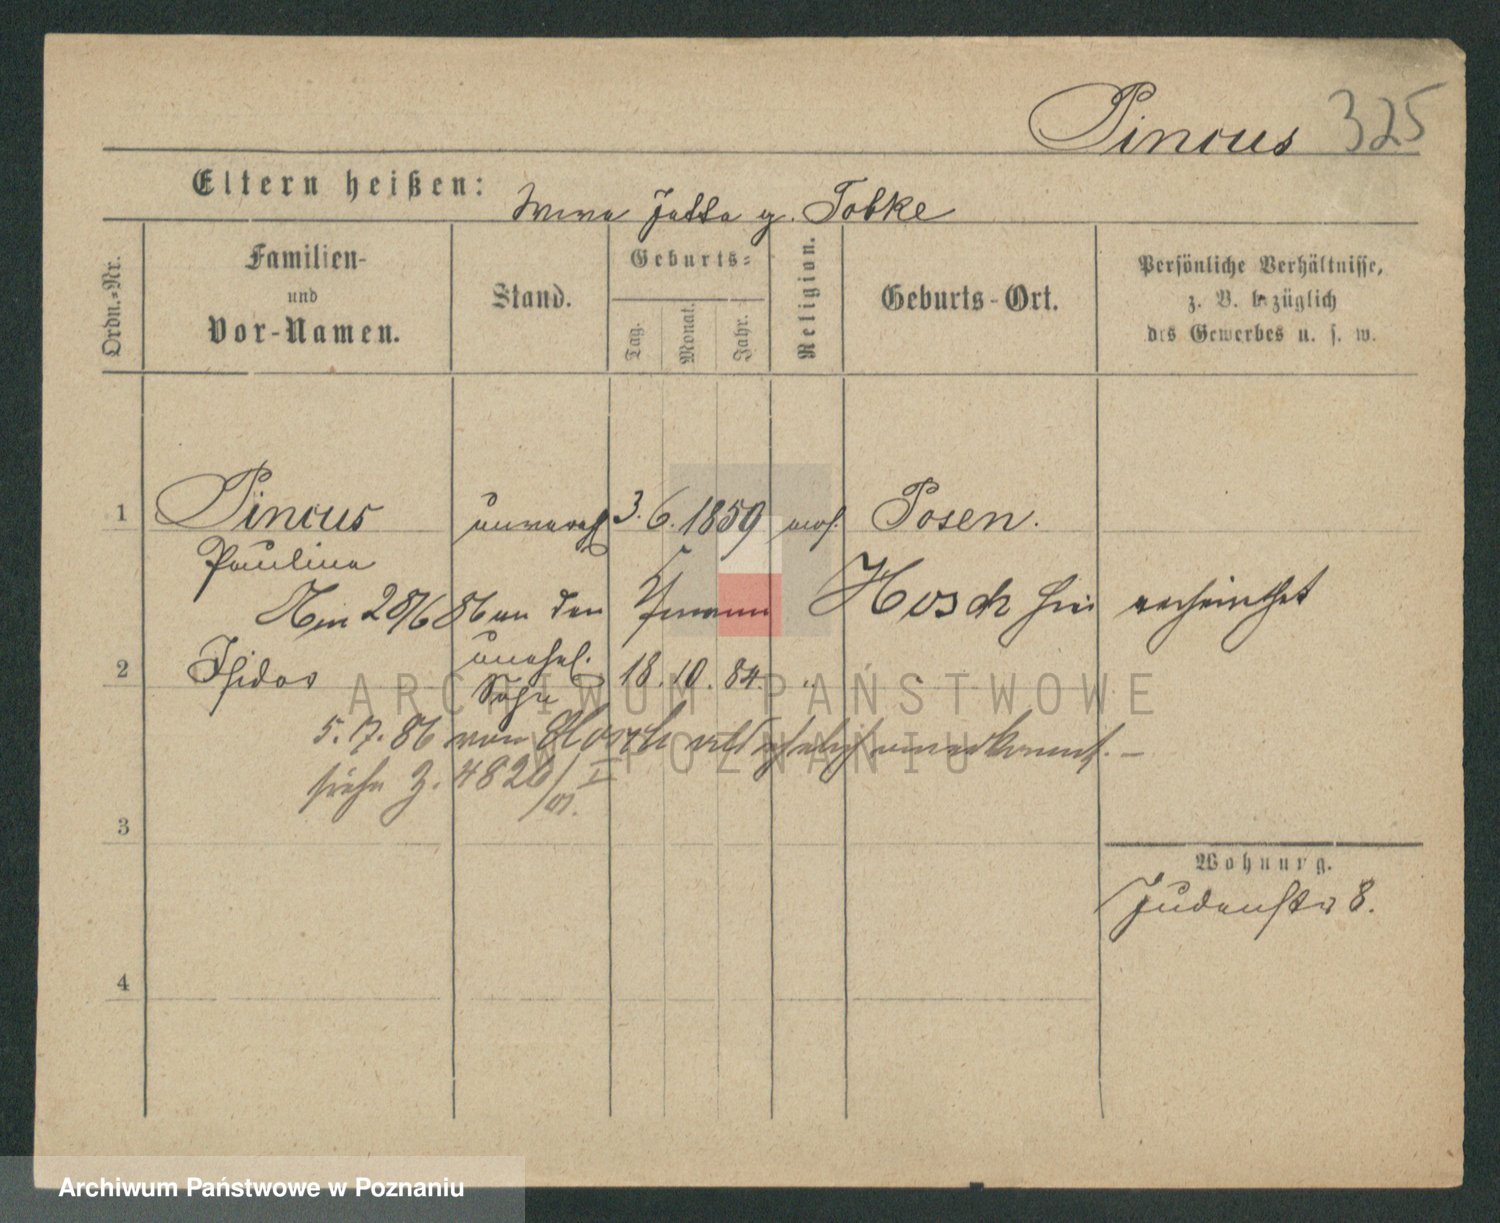 Pincus 325
Eltern heißen: Jette g. Tobke
Ordn.-Nr.
Familien-
und
Vor-Namen.
Stand.
Geburts-
Tag.
Monat.
Jahr.
Religion.
Geburts-Ort.
Persönliche Verhältnisse,
z. B. bezüglich
des Gewerbes u. s. w.
1 Pincus unverehl 3. 6. 1859 mos. Posen.
Pauline
28/6 86 an den Hosch hier verheirathet
2 Isidor unehel. 18. 10. 84. "
Sohn
5. 7. 86 von Hosch als ehelich anerkannt. —
siehe Z. 4820/II
3
Wohnung.
Judenstr 8.
4
ARCHIWUM PAŃSTWOWE
W POZNANIU
Archiwum Państwowe w Poznaniu